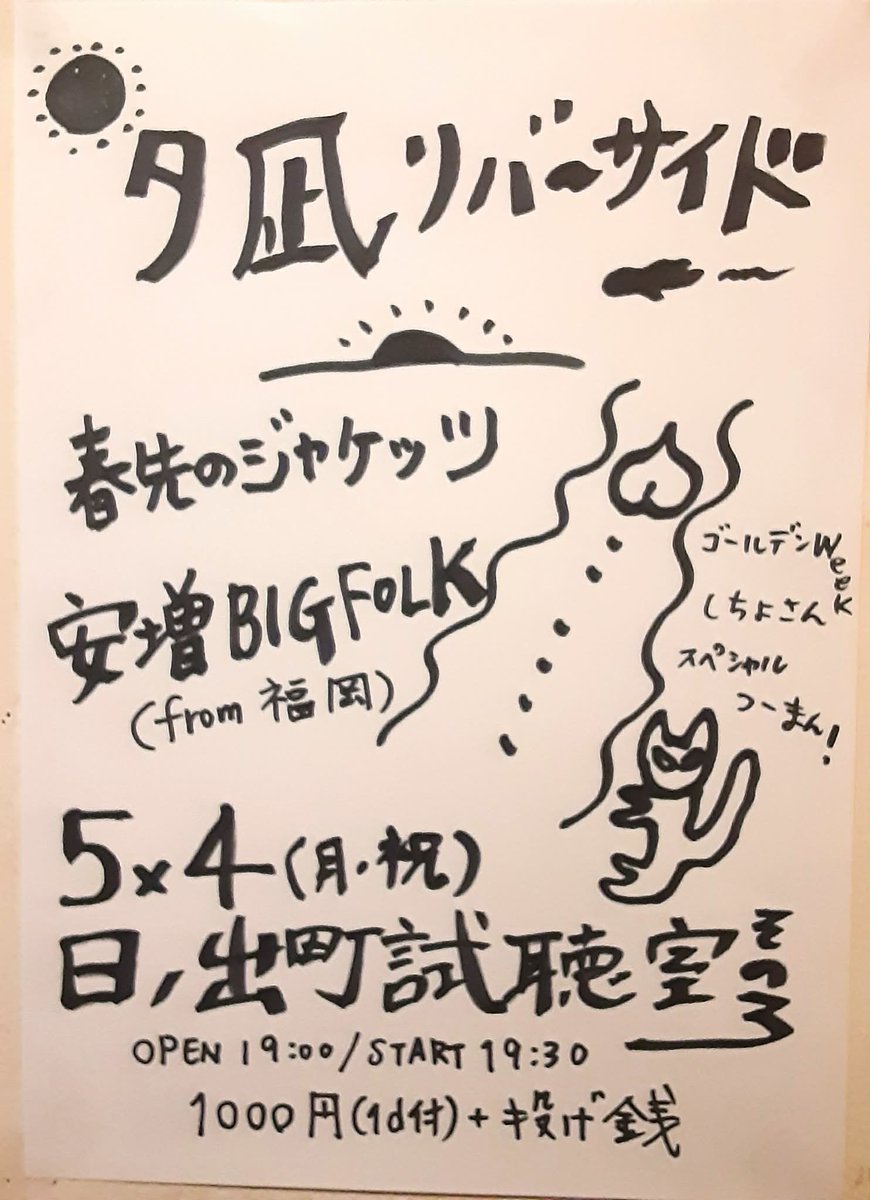 夕凪リバーサイド
春先のジャケッツ
安増BIGFOLK
(from 福岡)
ゴールデンWeek
しちよさん
スペシャル
つーまん!
5×4(月・祝)
日ノ出町試聴室その3
OPEN 19:00/START 19:30
1000円(1d付)+投げ銭